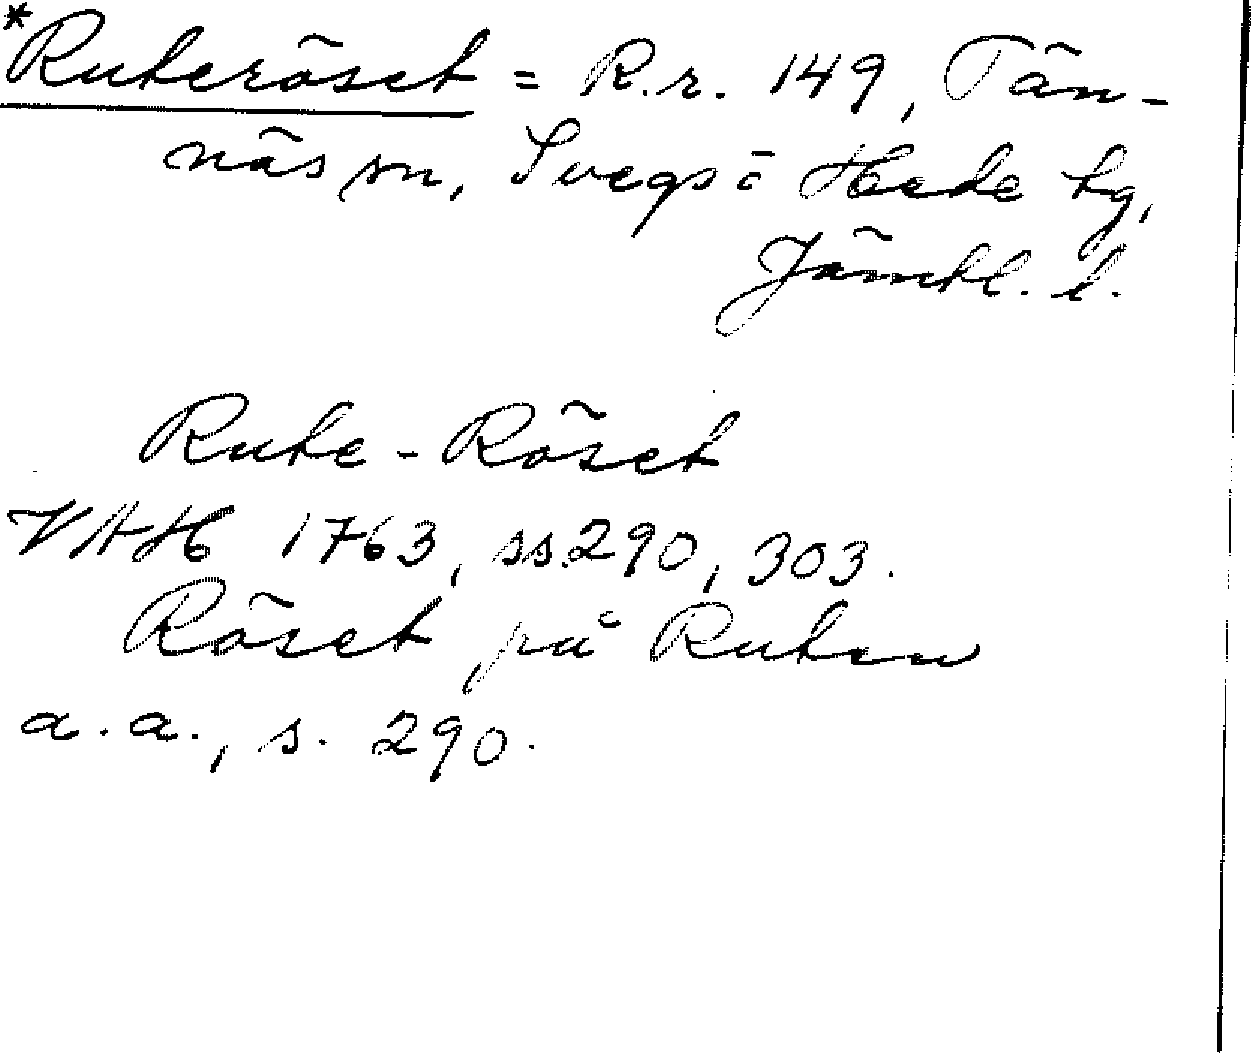 *Ruteröset = R.r. 149, Tän-
näs sn, Svegs o Hede tg,
Jämtl. l.
Rute-Röset
VAH 1763, ss. 290, 303.
Röset på Ruten
a.a., s. 290.